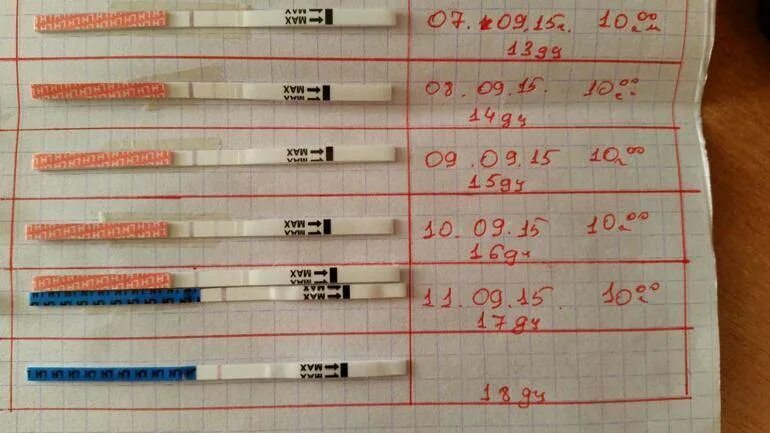 MAX
07. 09.15г. 10⁰⁰
13дц
MAX
08. 09.15. 10⁰⁰
14дц
MAX
09. 09.15 10⁰⁰
15дц
MAX
10. 09.15 10⁰⁰
16дц
MAX
MAX
11. 09.15. 10⁰⁰
17дц
MAX
18дц